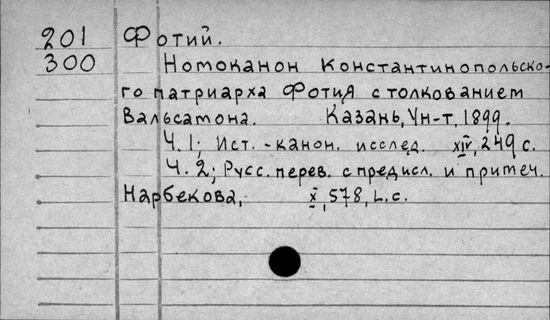 201 Фотий.
300 Номоканон Константинопольско-
го патриарха Фотия с толкованием
Вальсамона. Казань, Ун-т, 1899.
Ч. 1; Ист.-канон. исслед. XIV, 249 с.
Ч. 2; Русс. перев. с предисл. и примеч.
Нарбекова, X, 578, L. с.